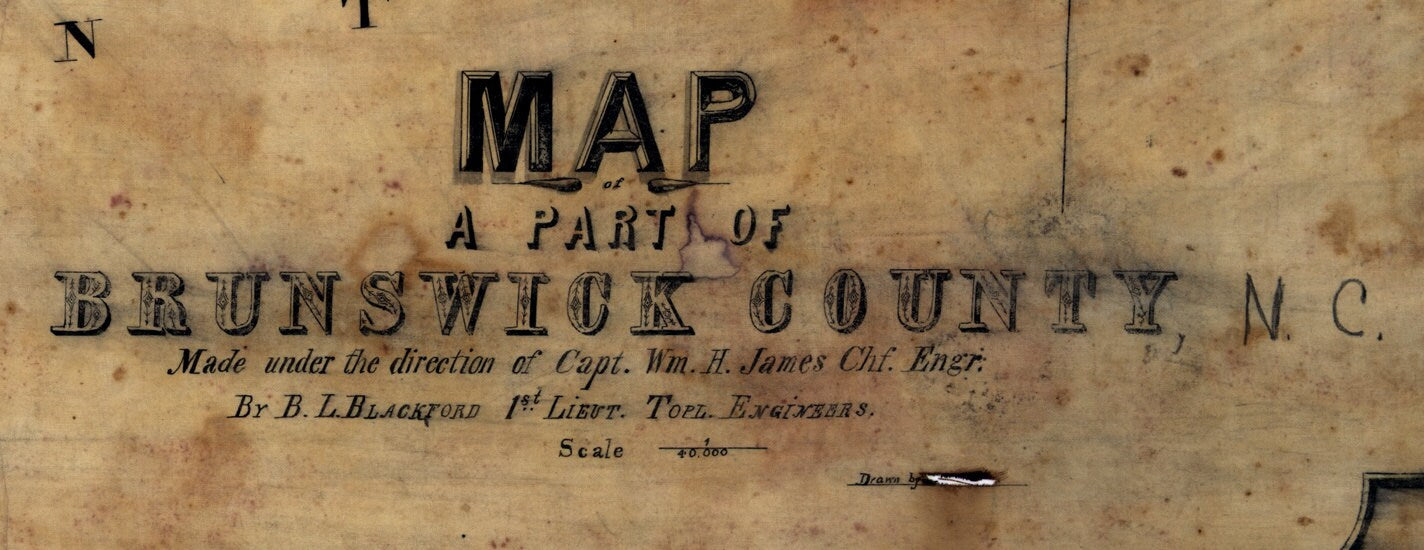 N T
MAP
of
A PART OF
BRUNSWICK COUNTY, N. C.
Made under the direction of Capt. Wm. H. James Chf. Engr.
By B. L. Blackford 1st Lieut. Topl. Engineers.
Scale 1/40,000
Drawn by